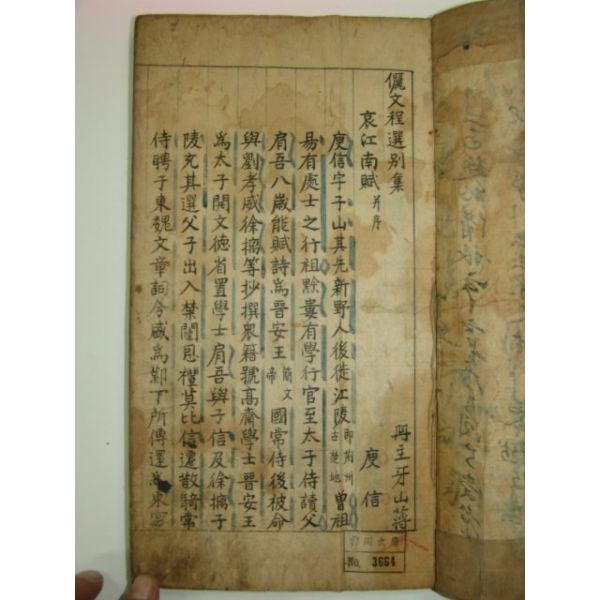 儷文程選別集
冊主牙山蔣
哀江南賦 幷序
庾信
庾信字子山其先新野人後徙江陵 即荊州古楚地 曾祖
易有處士之行祖黔婁有學行官至太子侍讀父
肩吾八歲能賦詩爲晉安王 簡文帝 國常侍後被命
與劉孝威徐摛等抄撰衆籍號高齋學士晉安王
爲太子開文德省置學士肩吾與子信及徐摛子
陵充其選父子出入禁闥恩禮莫比信遷散騎常
侍聘于東魏文章詞令盛爲鄴下所傳還爲東宮
No. 3664